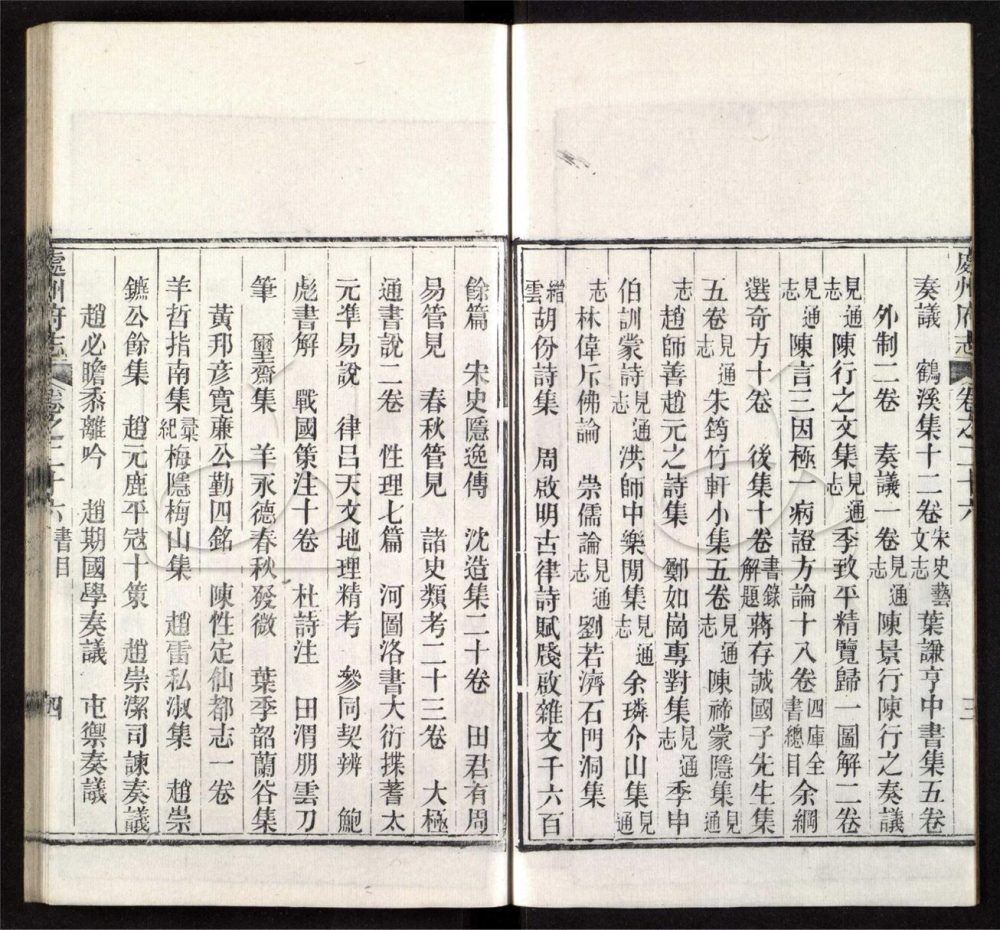 處州府志 卷之二十六 三
奏議 鶴溪集十二卷宋史藝文志葉謙亨中書集五卷
外制二卷 奏議一卷見通志陳景行陳行之奏議
見通志陳行之文集見通志季致平精覽歸一圖解二卷
見通志陳言三因極一病證方論十八卷四庫全書總目余綱
選奇方十卷 後集十卷書錄解題蔣存誠國子先生集
五卷見通志朱筠竹軒小集五卷見通志陳禘蒙隱集見通
志趙師善趙元之詩集 鄭如崗專對集見通志季申
伯訓蒙詩見通志洪師中樂閒集見通志余璘介山集見通
志林偉斥佛論 崇儒論見通志劉若濟石門洞集
縉雲胡份詩集 周啟明古律詩賦牋啟雜文千六百
餘篇 宋史隱逸傳 沈造集二十卷 田君有周
易管見 春秋管見 諸史類考二十三卷 大極
通書說二卷 性理七篇 河圖洛書大衍揲蓍太
元準易說 律呂天文地理精考 參同契辨 鮑
彪書解 戰國策注十卷 杜詩注 田渭朋雲刀
筆 璽齋集 羊永德春秋發微 葉季韶蘭谷集
黃邦彦寬亷公勤四銘 陳性定仙都志一卷
羊哲指南集彙紀梅隱梅山集 趙雷私淑集 趙崇
鑣公餘集 趙元鹿平冦十策 趙崇潔司諫奏議
趙必瞻黍離吟 趙期國學奏議 屯禦奏議
處州府志 卷之二十六 書目 四